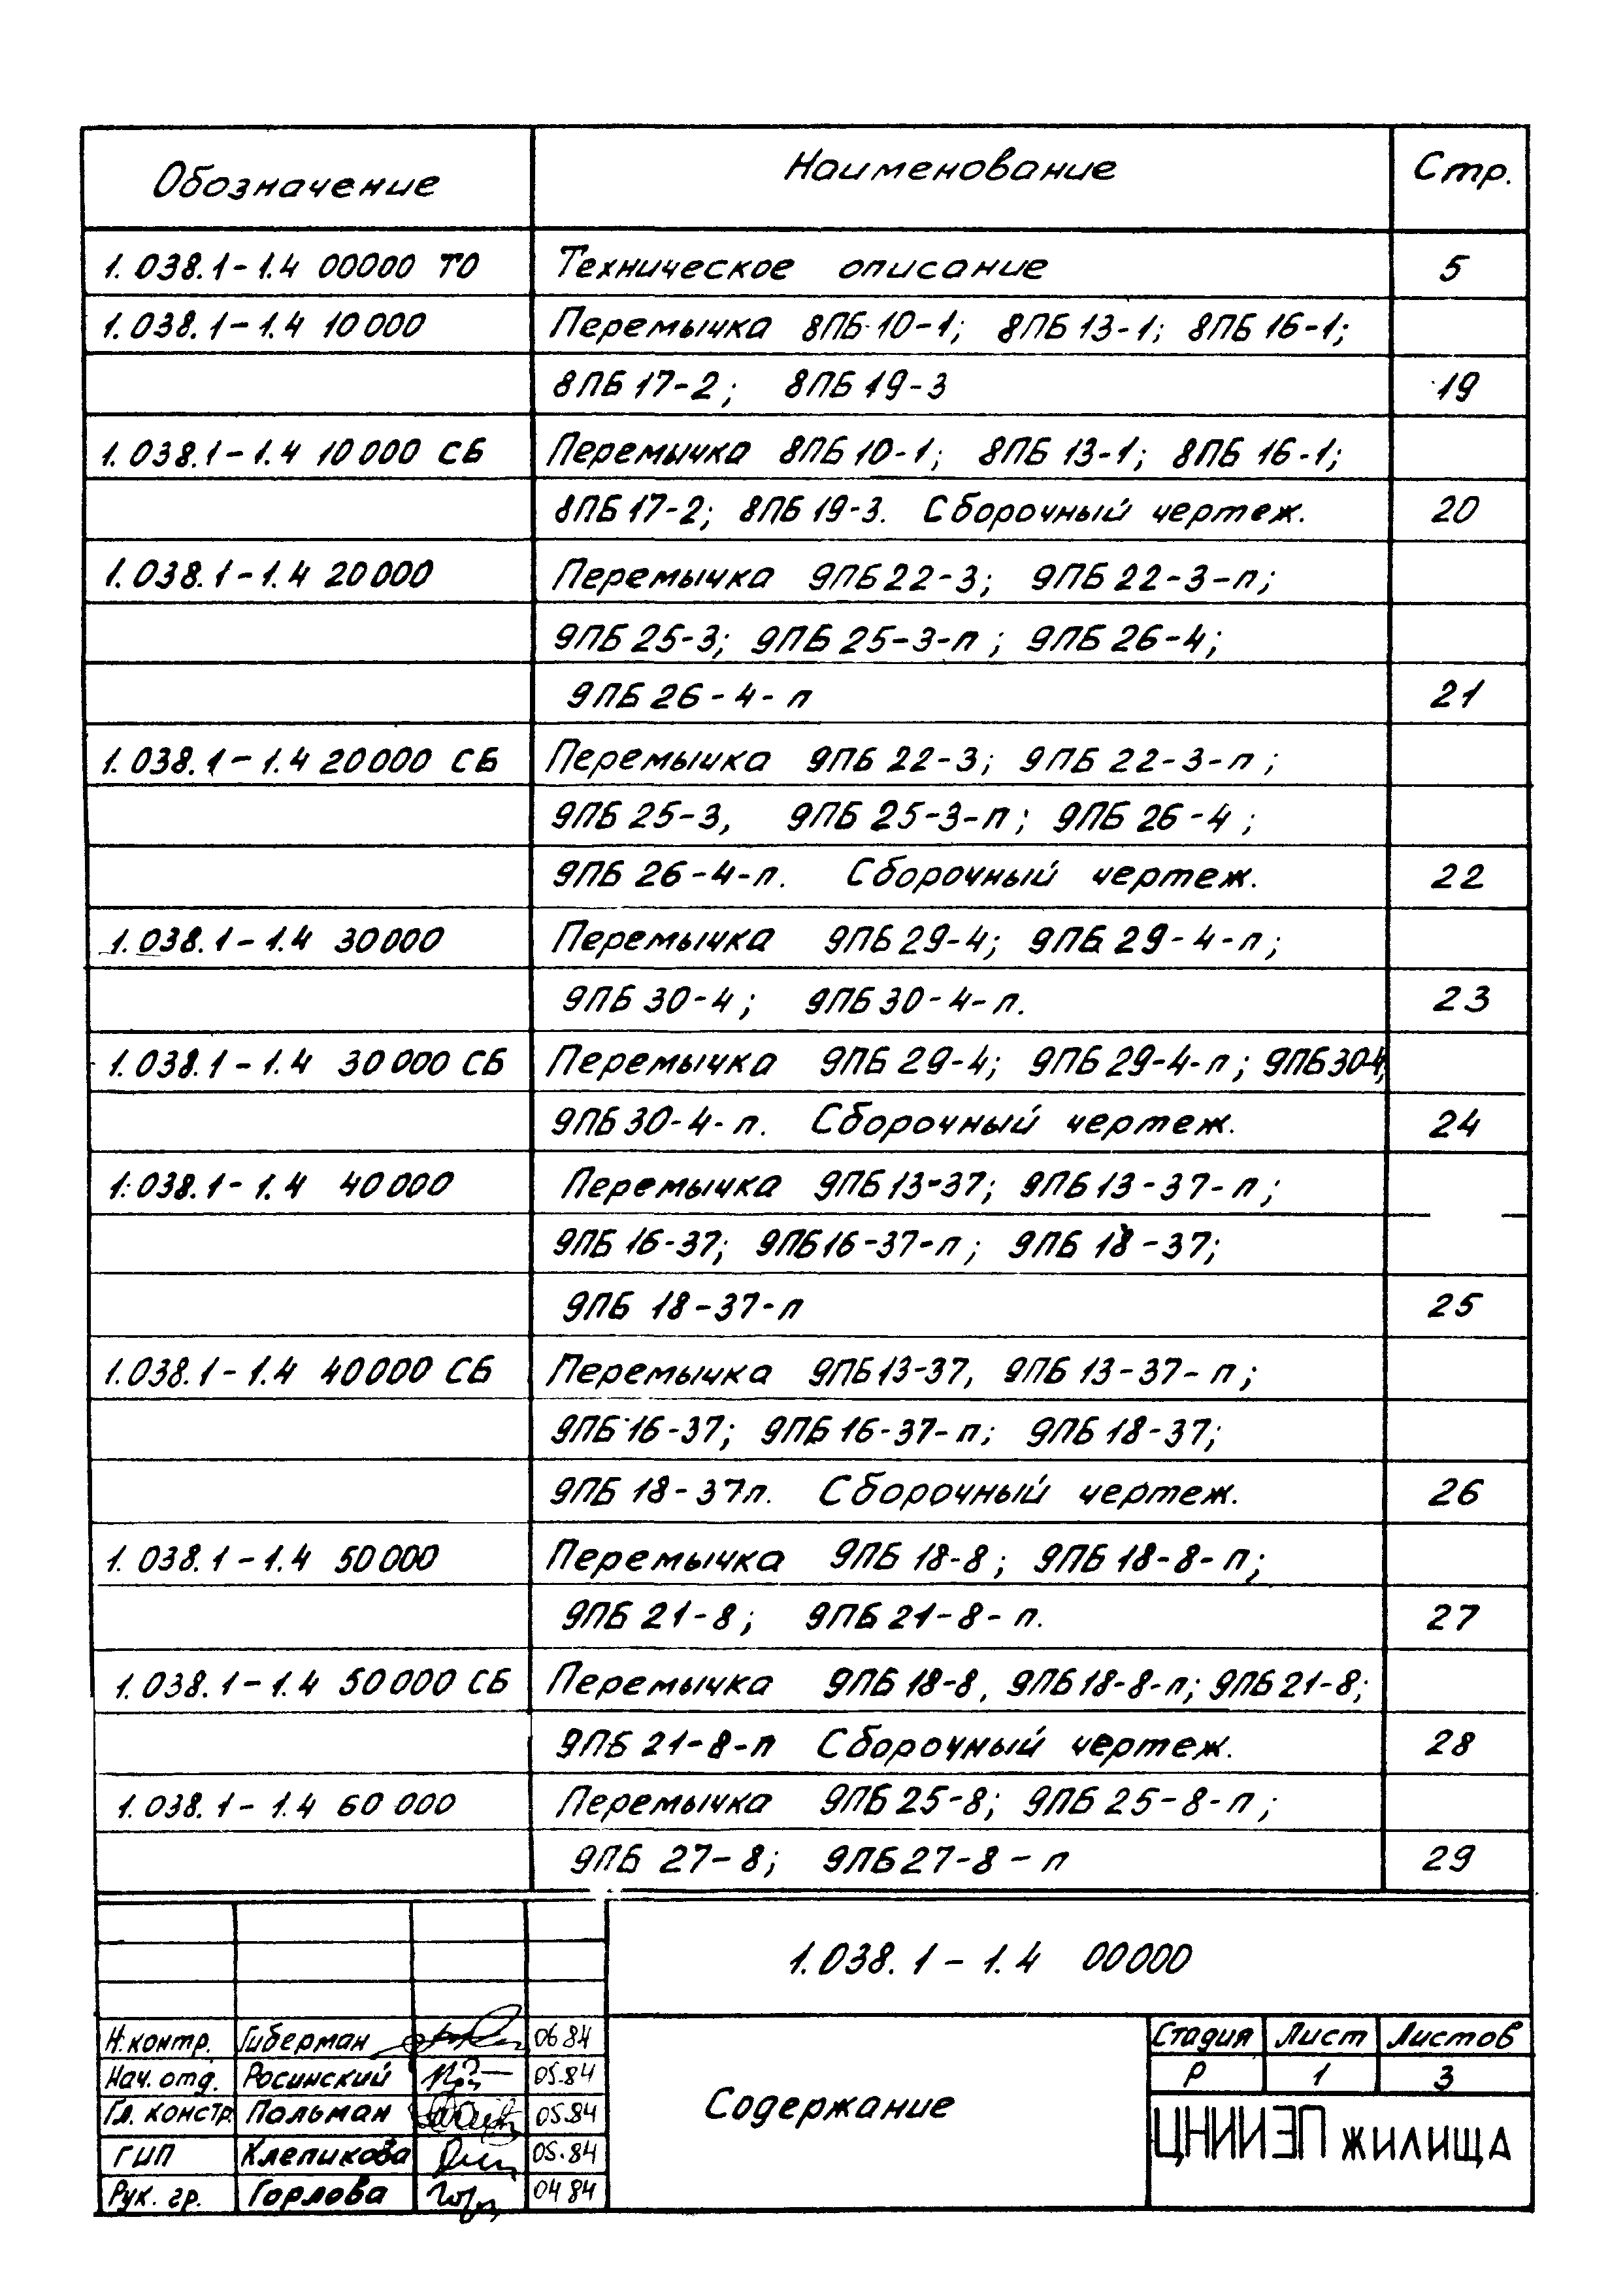 Обозначение Наименование Стр.
1.038.1-1.4 00000 ТО Техническое описание 5
1.038.1-1.4 10000 Перемычка 8ПБ 10-1; 8ПБ 13-1; 8ПБ 16-1;
8ПБ 17-2; 8ПБ 19-3 19
1.038.1-1.4 10000 СБ Перемычка 8ПБ 10-1; 8ПБ 13-1; 8ПБ 16-1;
8ПБ 17-2; 8ПБ 19-3. Сборочный чертеж. 20
1.038.1-1.4 20000 Перемычка 9ПБ 22-3; 9ПБ 22-3-п;
9ПБ 25-3; 9ПБ 25-3-п; 9ПБ 26-4;
9ПБ 26-4-п 21
1.038.1-1.4 20000 СБ Перемычка 9ПБ 22-3; 9ПБ 22-3-п;
9ПБ 25-3, 9ПБ 25-3-п; 9ПБ 26-4;
9ПБ 26-4-п. Сборочный чертеж. 22
1.038.1-1.4 30000 Перемычка 9ПБ 29-4; 9ПБ 29-4-п;
9ПБ 30-4; 9ПБ 30-4-п. 23
1.038.1-1.4 30000 СБ Перемычка 9ПБ 29-4; 9ПБ 29-4-п; 9ПБ 30-4;
9ПБ 30-4-п. Сборочный чертеж. 24
1.038.1-1.4 40000 Перемычка 9ПБ 13-37; 9ПБ 13-37-п;
9ПБ 16-37; 9ПБ 16-37-п; 9ПБ 18-37;
9ПБ 18-37-п 25
1.038.1-1.4 40000 СБ Перемычка 9ПБ 13-37, 9ПБ 13-37-п;
9ПБ 16-37; 9ПБ 16-37-п; 9ПБ 18-37;
9ПБ 18-37п. Сборочный чертеж. 26
1.038.1-1.4 50000 Перемычка 9ПБ 18-8; 9ПБ 18-8-п;
9ПБ 21-8; 9ПБ 21-8-п. 27
1.038.1-1.4 50000 СБ Перемычка 9ПБ 18-8, 9ПБ 18-8-п; 9ПБ 21-8;
9ПБ 21-8-п Сборочный чертеж. 28
1.038.1-1.4 60000 Перемычка 9ПБ 25-8; 9ПБ 25-8-п;
9ПБ 27-8; 9ПБ 27-8-п 29
1.038.1-1.4 00000
Н.контр. Гиберман 06 84
Нач. отд. Росинский 05.84
Гл. констр. Польман 05.84
ГИП Клепикова 05.84
Рук. гр. Горлова 04 84
Содержание
Стадия Лист Листов
Р 1 3
ЦНИИЭП жилища